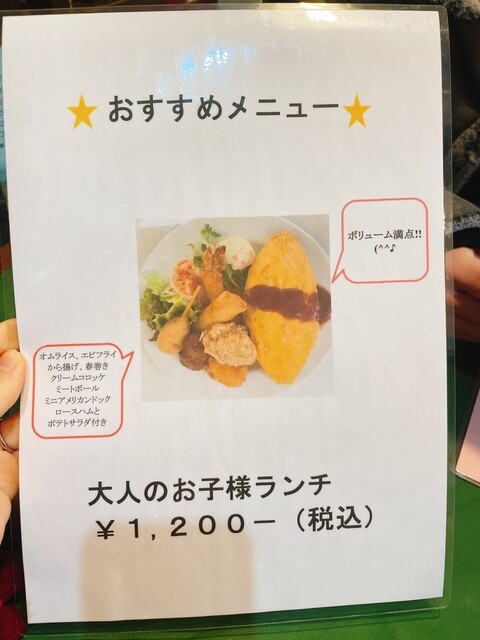 ★おすすめメニュー★
ボリューム満点!!
(^^♪
オムライス、エビフライ
から揚げ、春巻き
クリームコロッケ
ミートボール
ミニアメリカンドック
ロースハムと
ポテトサラダ付き
大人のお子様ランチ
￥１,２００－（税込）